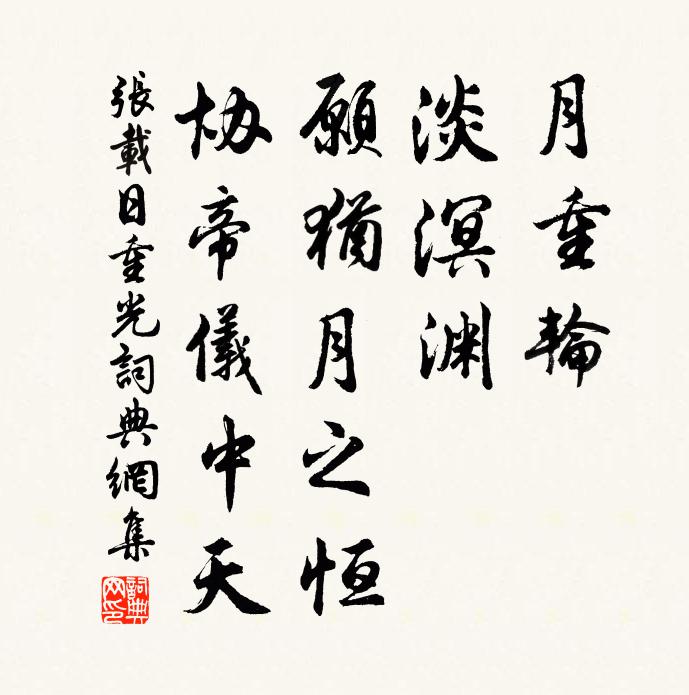 月重輪
淡溟渊
願猶月之恒
协帝儀中天
張載日重光詞典網集
詞典网印